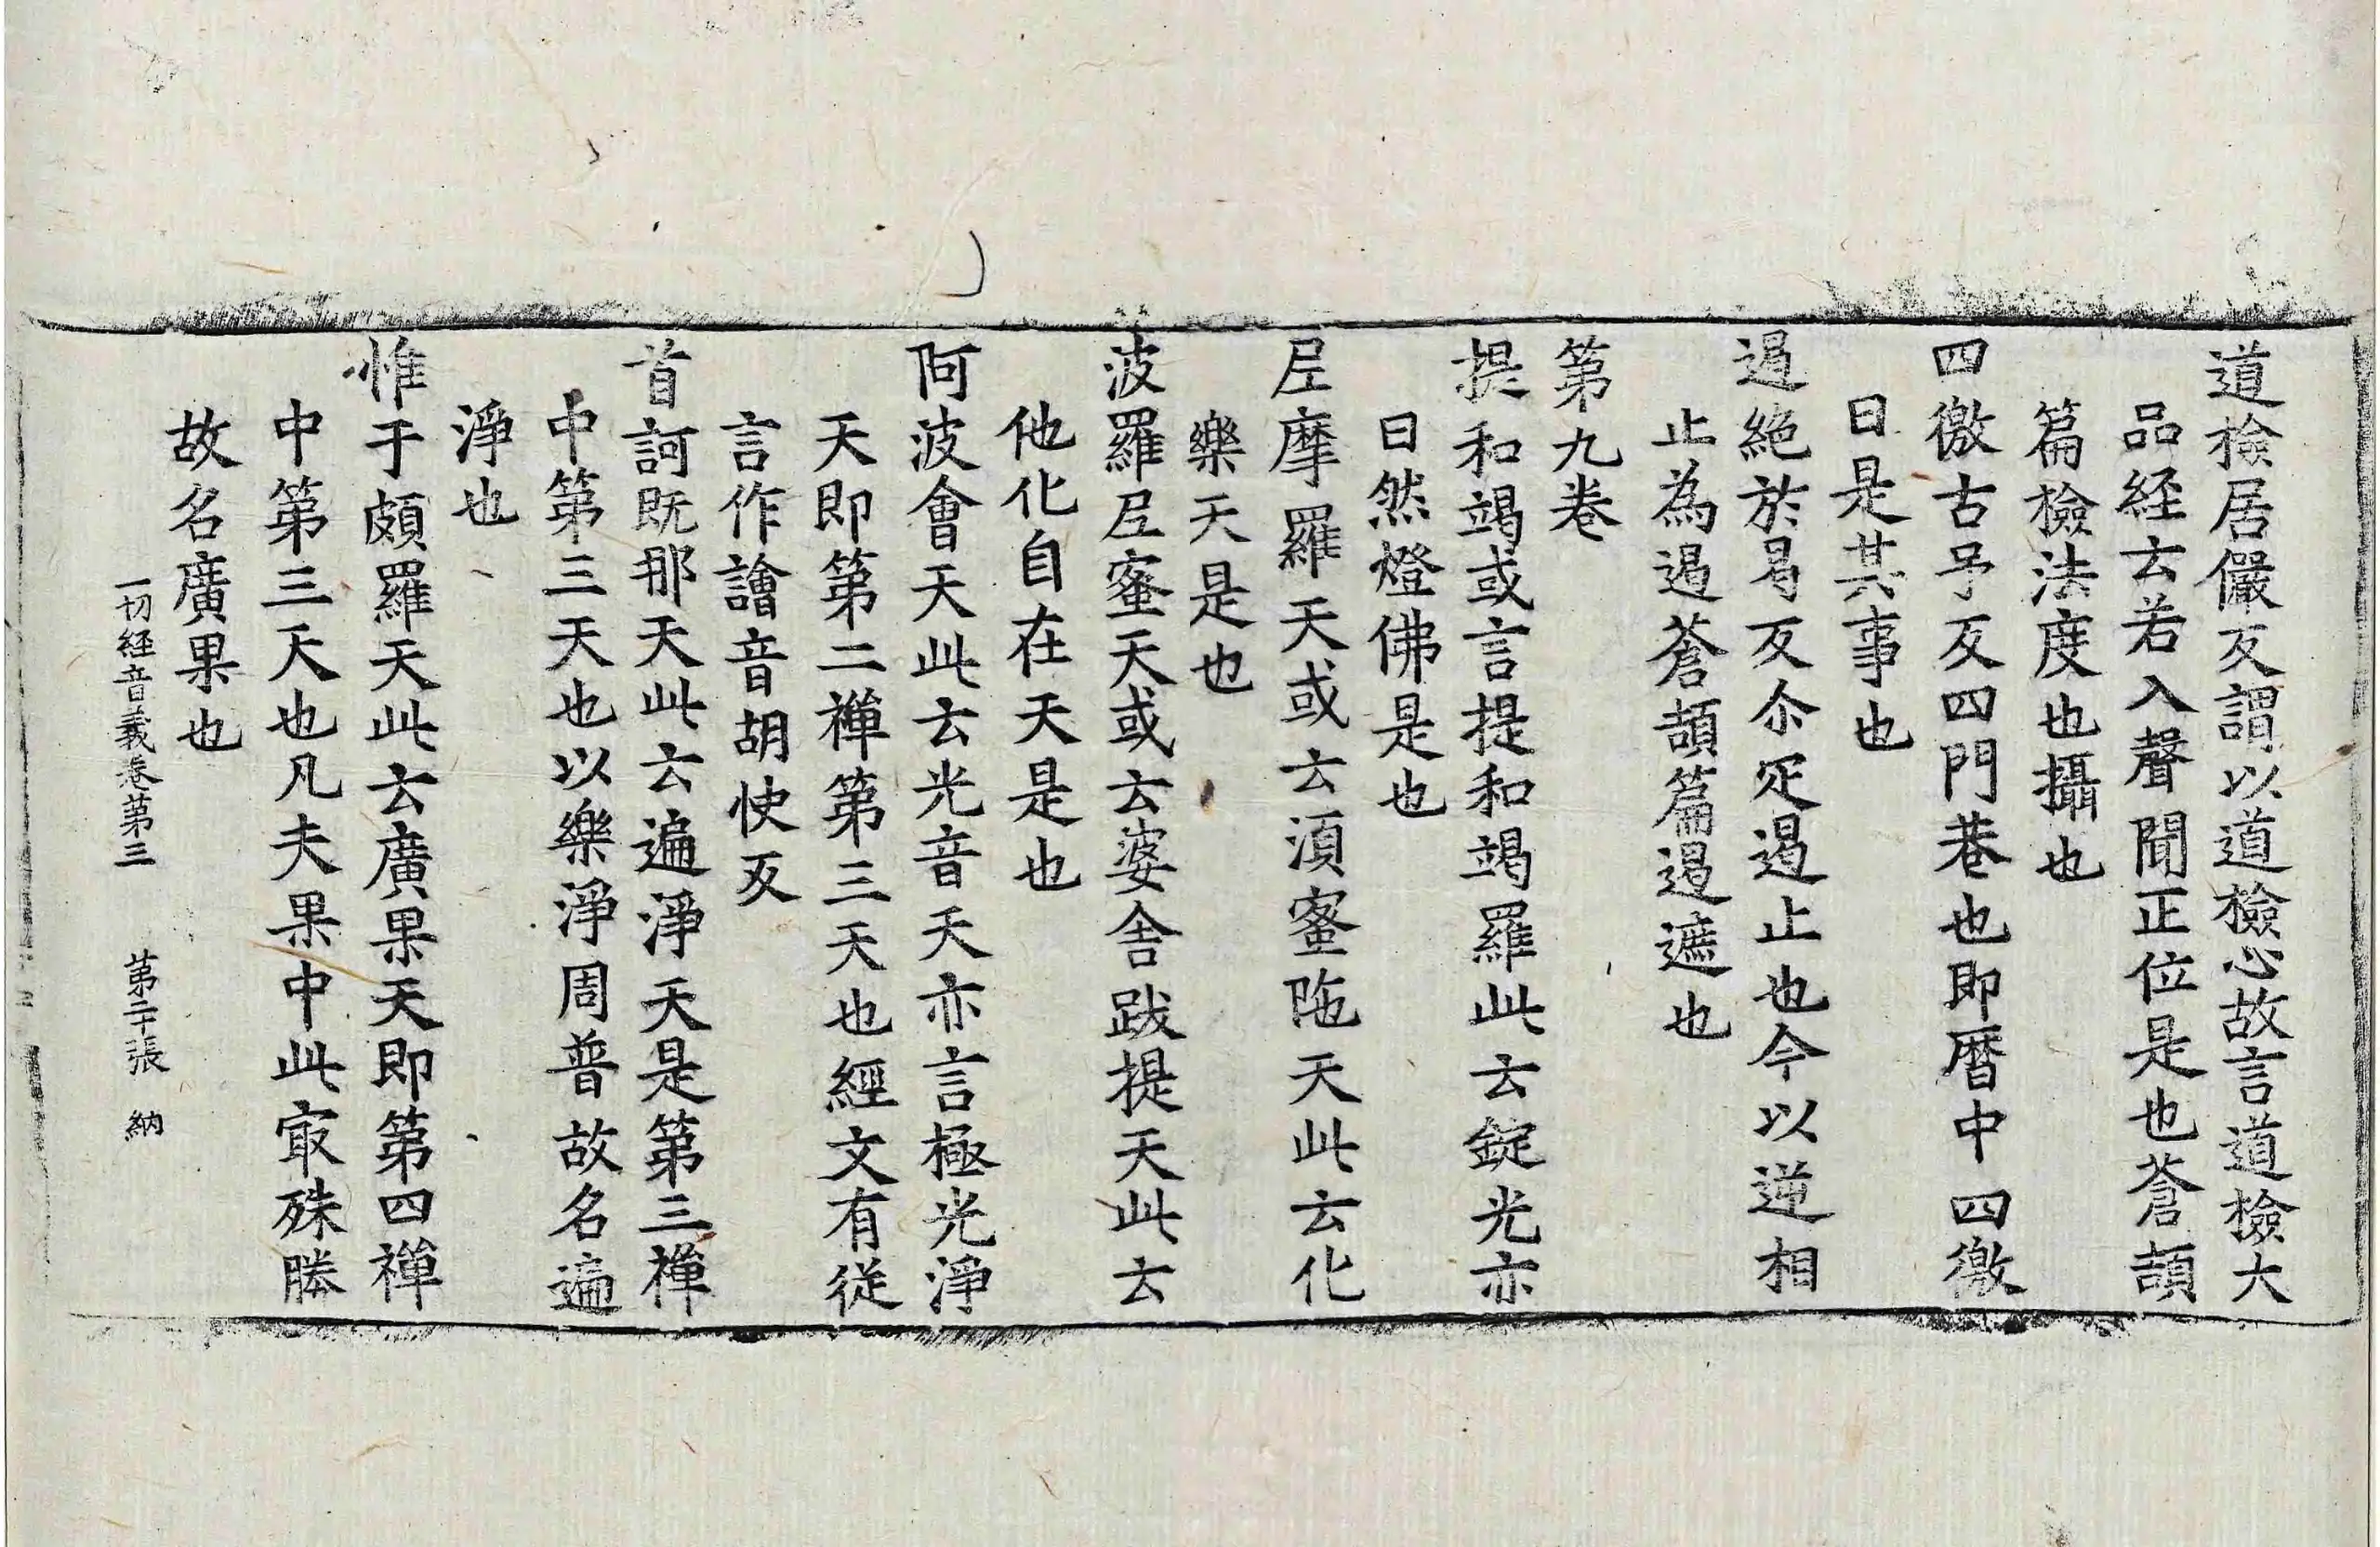 道檢居儼反謂以道檢心故言道檢大
品経云若入聲聞正位是也蒼頡
篇檢法度也攝也
四徼古予反四門巷也即曆中四徼
曰是其事也
遏絕於曷反尒疋遏止也今以逆相
止為遏蒼頡篇遏遮也
第九卷
提和竭或言提和竭羅此云錠光亦
曰然燈佛是也
尼摩羅天或云湏蜜陁天此云化
樂天是也
波羅尼蜜天或云婆舎跋提天此云
他化自在天是也
阿波會天此云光音天亦言極光淨
天即第二禪第三天也經文有從
言作譮音胡快反
首訶既那天此云遍淨天是第三禪
中第三天也以樂淨周普故名遍
淨也
惟于頗羅天此云廣果天即第四禪
中第三天也凡夫果中此㝡殊勝
故名廣果也
一切経音義卷第三 第二十張 納